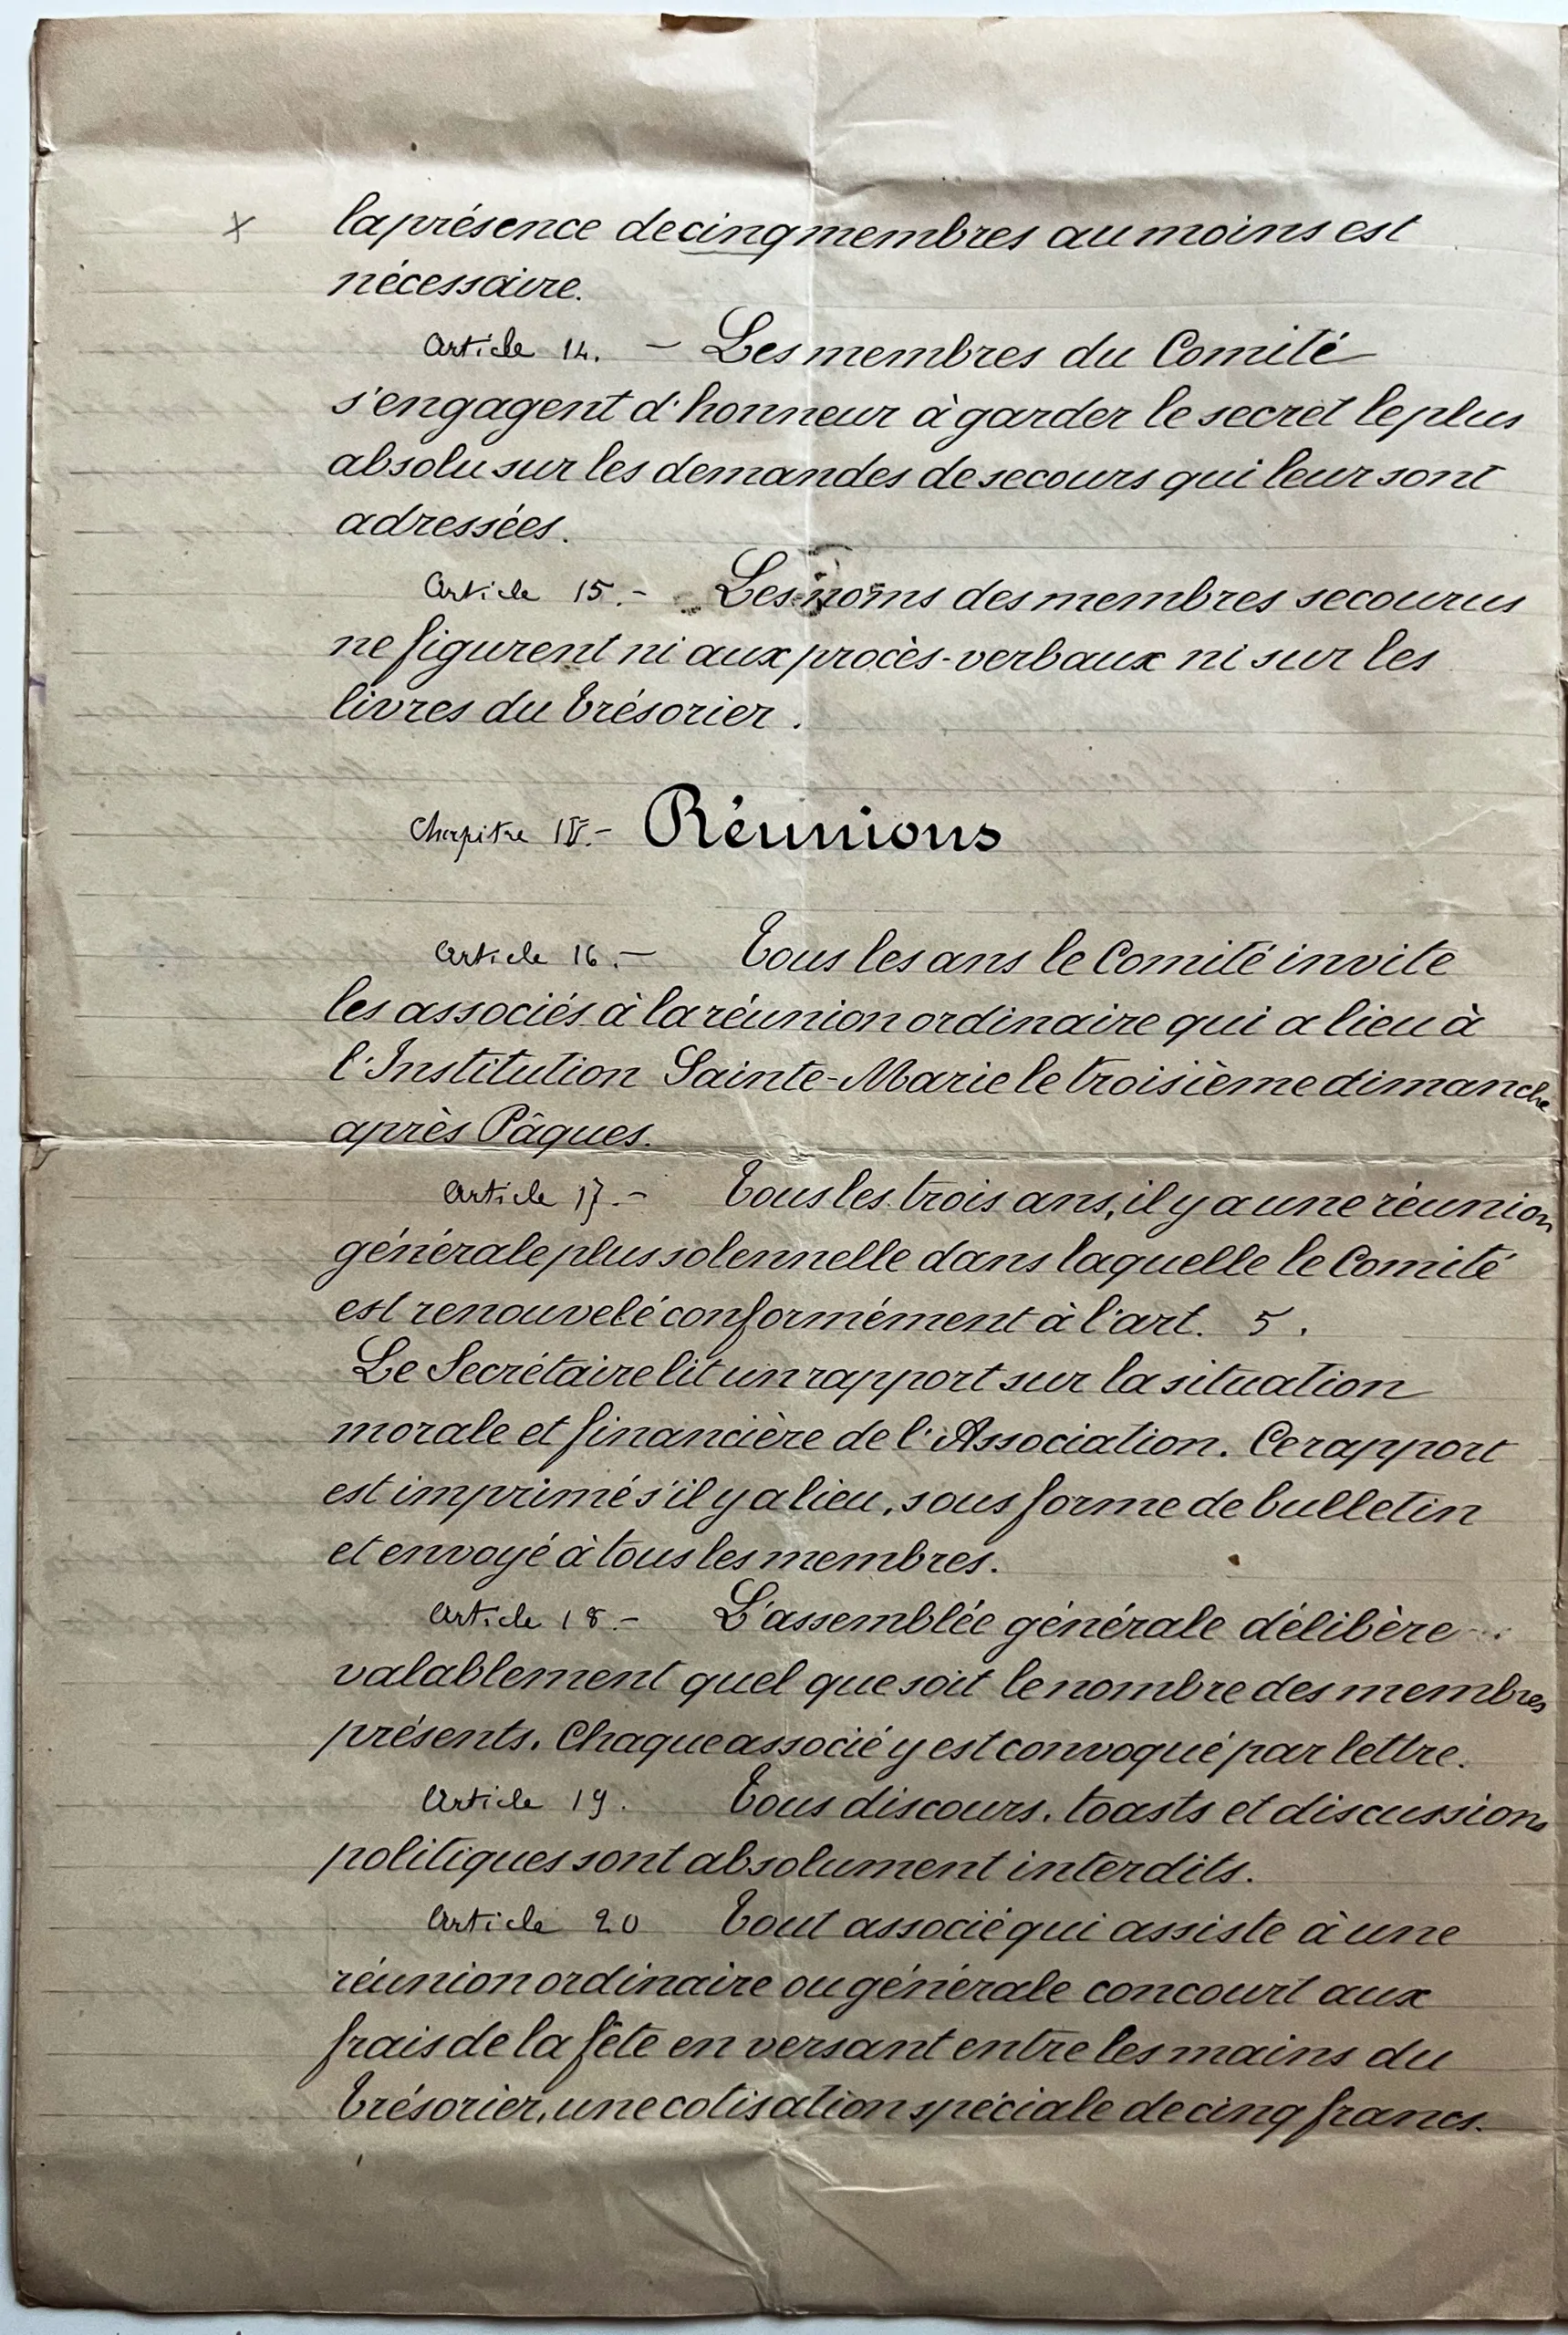 x la présence de cinq membres au moins est
nécessaire.
Article 14. — Les membres du Comité
s'engagent d'honneur à garder le secret le plus
absolu sur les demandes de secours qui leur sont
adressées.
Article 15. — Les noms des membres secourus
ne figurent ni aux procès-verbaux ni sur les
livres du trésorier.
Chapitre IV. — Réunions
Article 16. — Tous les ans le Comité invite
les associés à la réunion ordinaire qui a lieu à
l'Institution Sainte-Marie le troisième dimanche
après Pâques.
Article 17. — Tous les trois ans, il y a une réunion
générale plus solennelle dans laquelle le Comité
est renouvelé conformément à l'art. 5.
Le Secrétaire lit un rapport sur la situation
morale et financière de l'Association. Ce rapport
est imprimé s'il y a lieu, sous forme de bulletin
et envoyé à tous les membres.
Article 18 — L'assemblée générale délibère
valablement quel que soit le nombre des membres
présents. Chaque associé y est convoqué par lettre.
Article 19. Tous discours, toasts et discussions
politiques sont absolument interdits.
Article 20 Tout associé qui assiste à une
réunion ordinaire ou générale concourt aux
frais de la fête en versant entre les mains du
trésorier, une cotisation spéciale de cinq francs.